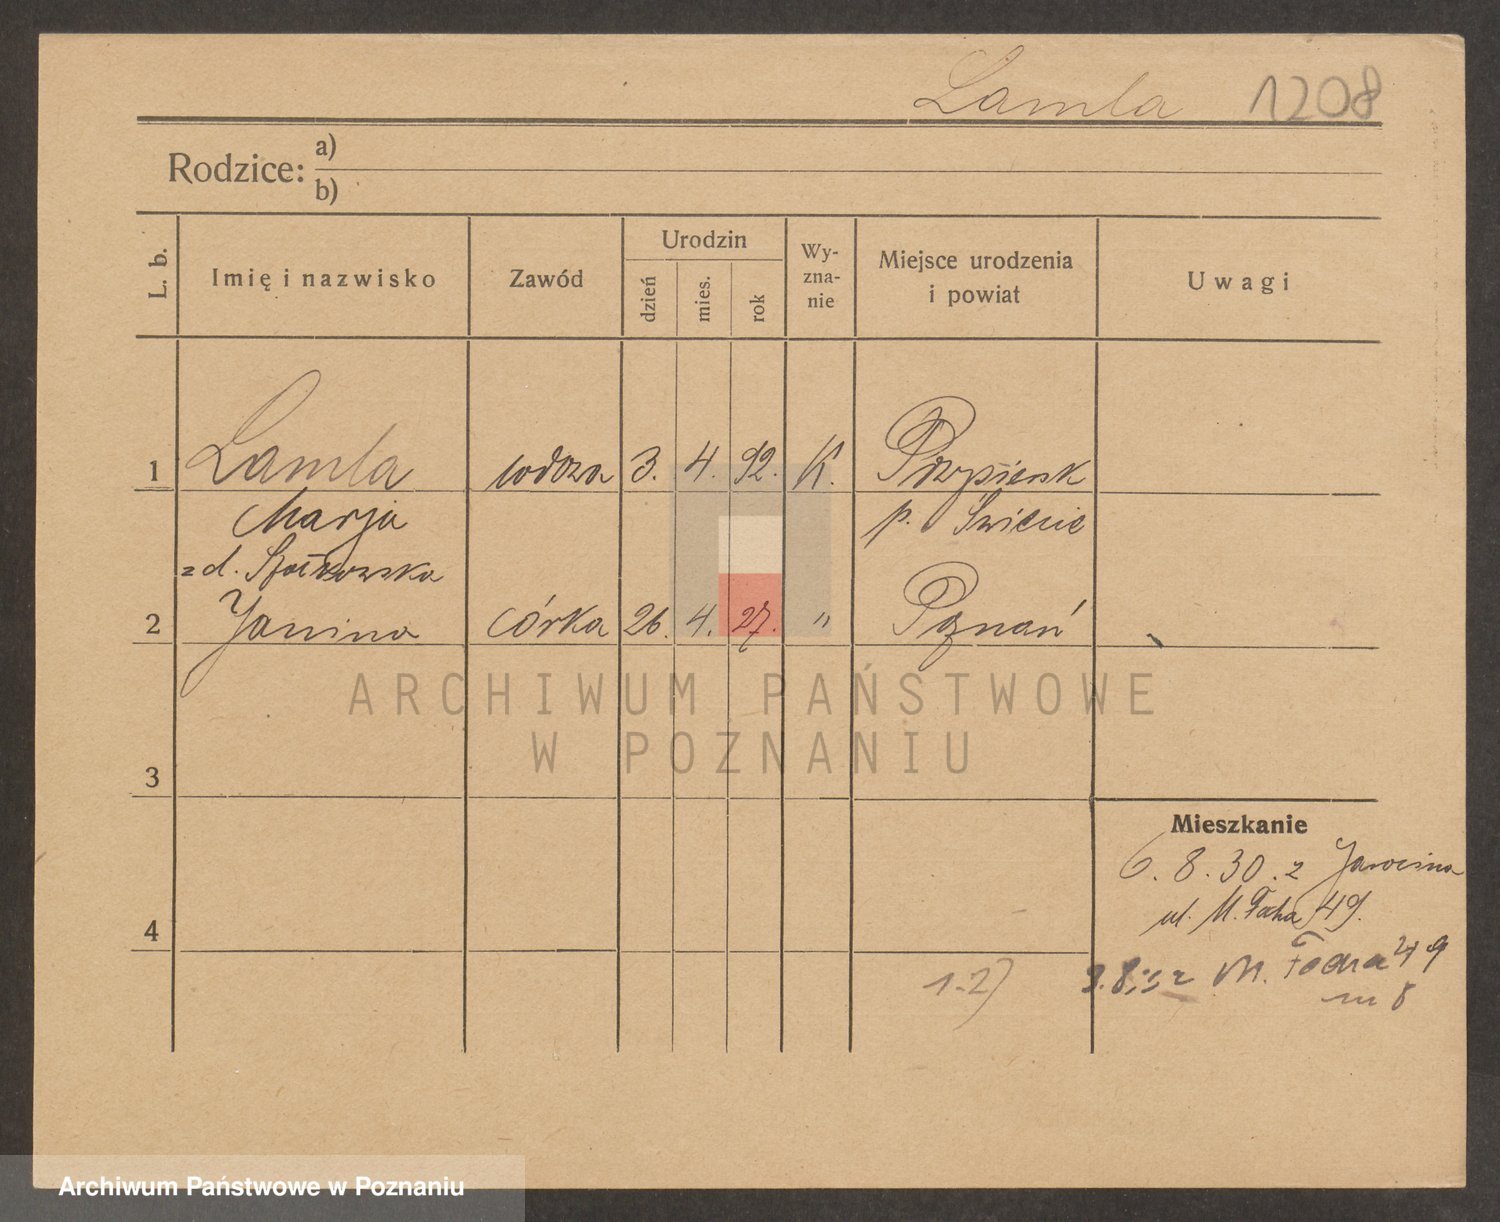 Lamla 1208
Rodzice: a)
b)
L. b. Imię i nazwisko Zawód Urodzin dzień mies. rok Wy-zna-nie Miejsce urodzenia i powiat Uwagi
1 Lamla wdowa 3. 4. 92. K. Przysiersk
Marja p. Świecie
z d.
2 Janina córka 26. 4. 27. " Poznań
ARCHIWUM PAŃSTWOWE
W POZNANIU
3
Mieszkanie
6. 8. 30. z Jarocina
ul. M. Focha 49.
4
1-2) M. Focha 49
m 8
Archiwum Państwowe w Poznaniu